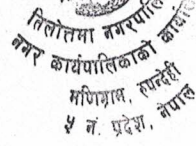 तिलोत्तमा नगरपालि
नगर कार्यपालिकाको कार्या
मणिग्राम, रुपन्देही
५ नं. प्रदेश, नेपाल